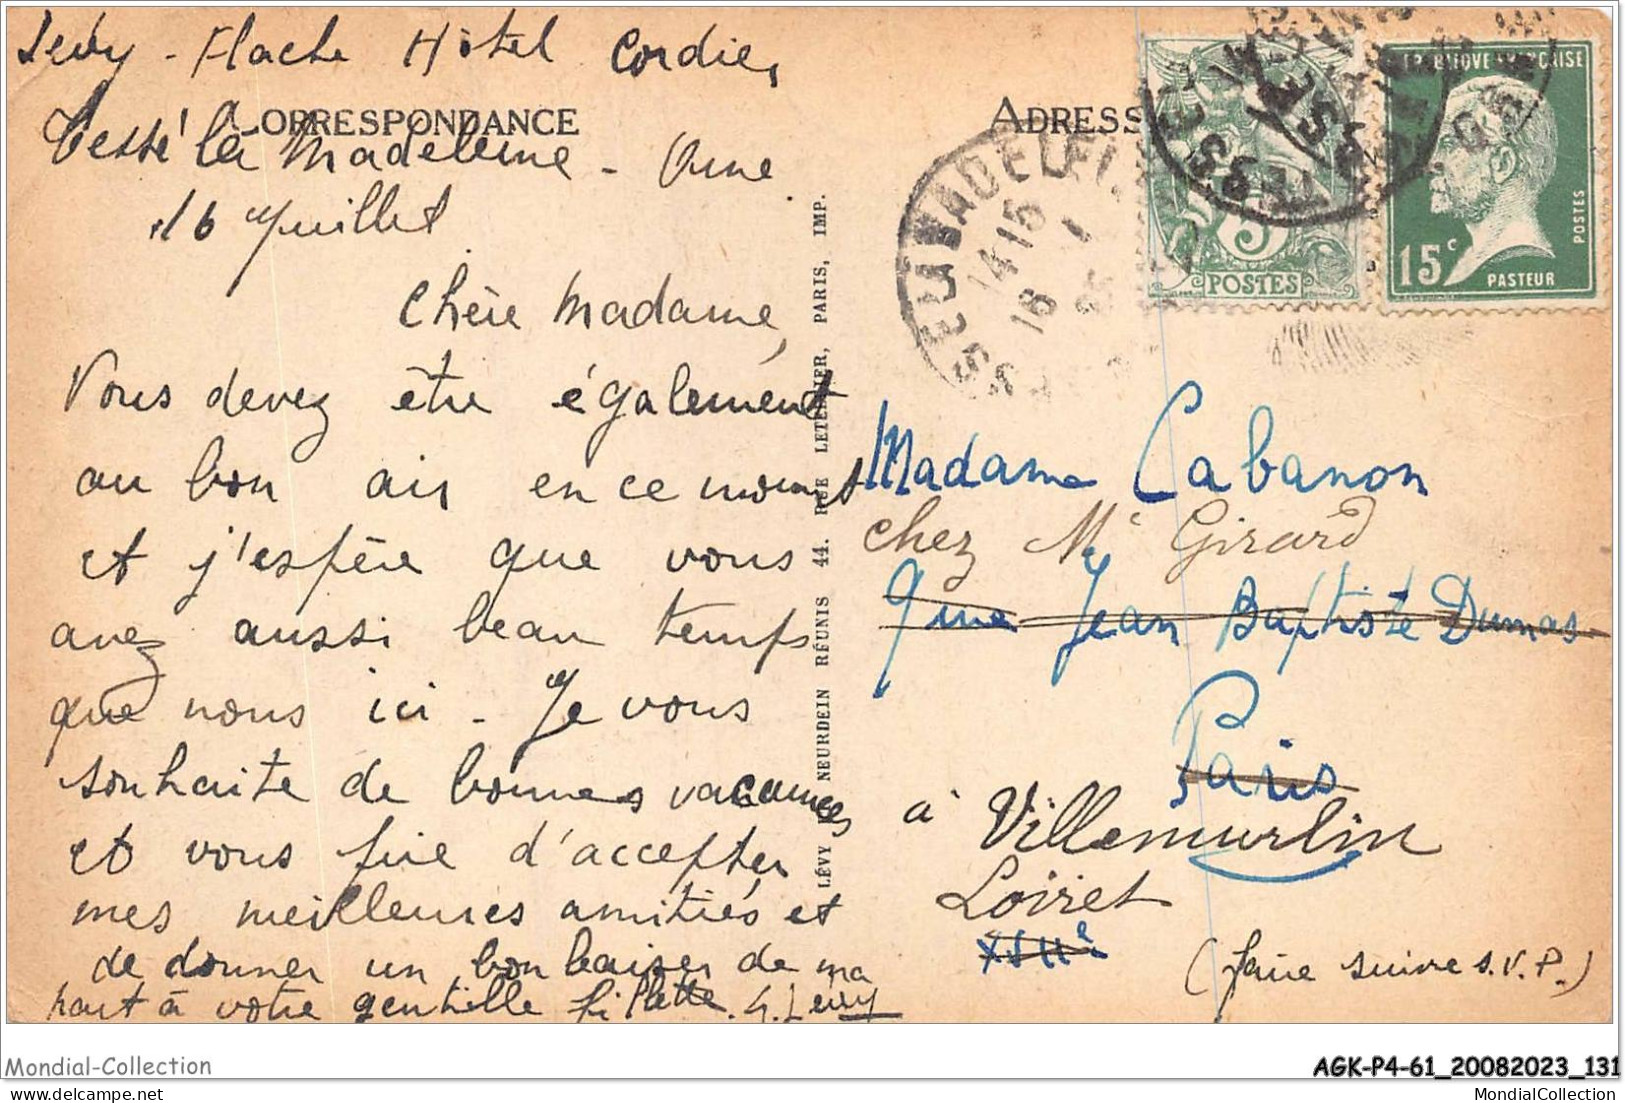 Levy - Flache Hôtel Cordier
CORRESPONDANCE
ADRESS
Tessé la Madeleine - Orne
16 Juillet
Chère Madame,
Vous devez être également
au bon air en ce moment
et j'espère que vous
avez aussi beau temps
que nous ici - Je vous
souhaite de bonnes vacances
et vous prie d'accepter
mes meilleures amitiés et
de donner un bon baiser de ma
part à votre gentille fillette. G. Levy
LÉVY ET NEURDEIN RÉUNIS 44. RUE LETELLIER, PARIS, IMP.
5
POSTES
RÉPUBLIQUE FRANÇAISE
15c
PASTEUR
POSTES
LA MADELEI
14-15
16
Madame Cabanon
chez Mr Girard
9 rue Jean Baptiste Dumas
Paris
à Villemurlin
Loiret
XVIIe
(faire suivre S.V.P.)
Mondial-Collection
AGK-P4-61_20082023_131
MondialCollection